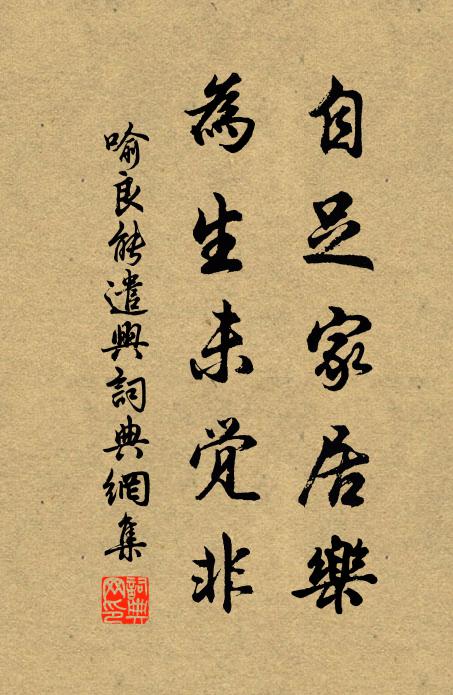 自足家居樂
為生未觉非
喻良能遣興詞典網集
詞典网印